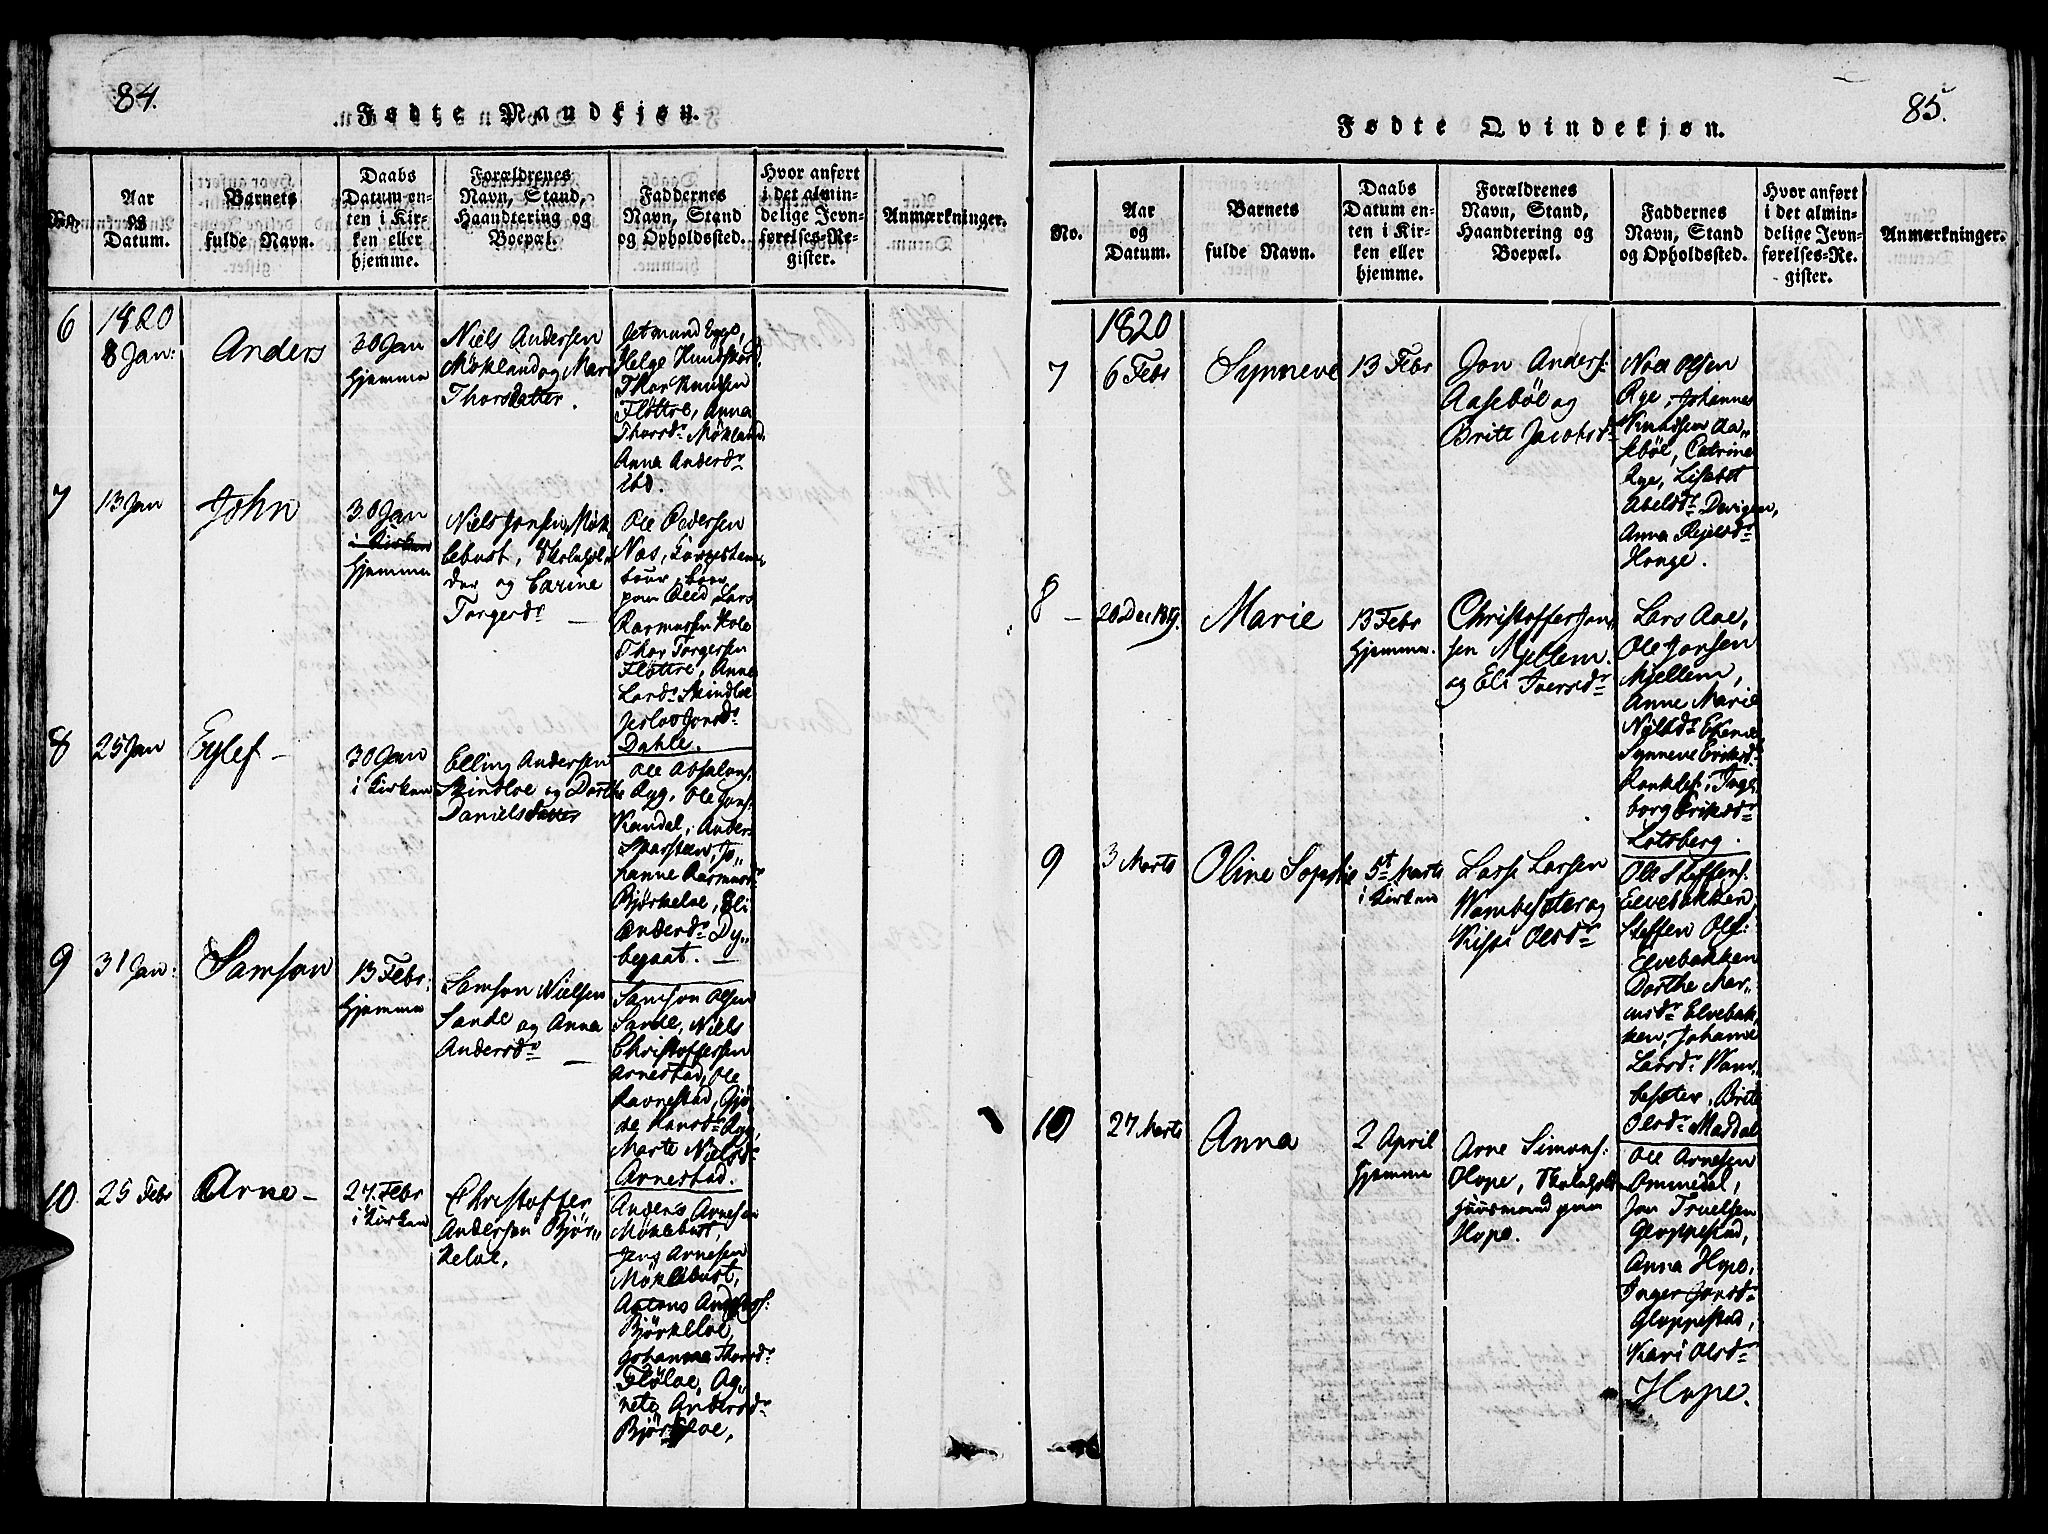 84.
Fødte Mandkjøn.
No.
Aar
og
Datum.
Barnets
fulde Navn.
Daabs
Datum en-
ten i Kir-
ken eller
hjemme.
Forældrenes
Navn, Stand,
Haandtering og
Boepæl.
Faddernes
Navn, Stand
og Opholdssted.
Hvor anført
i det almin-
delige Jevn-
førelses-Re-
gister.
Anmærkninger.
6
1820
8 Jan:
Anders
30 Jan
hjemme
Niels Andersen
Møkland og Mari
Thorsdatter.
Jetmund Egge,
Helge Hundskord
Thor Knudsen
Fløttre, Anna
Thorsdr Møkland
Anna Andersdr
Ibd.
7
13 Jan
John
30 Jan
i Kirken
hjemme
Niels Jonsen Møk
lebust, Skolehol
der og Carine
Torgersdr
Ole Pedersen
Næs,
Lars
Rasmussen Hole
Thor Torgersen
Fløttre, Anne
Larsdr Skindloe
Jonsdr
Dahle.
8
25 Jan
Eylef
30 Jan
i Kirken
Elling Andersen
Skindloe og Dorthe
Danielsdatter
Ole Absalons.
Ryg, Ole Jons.
Kandal, Anders
Sparsteen, Jo„
hanne Rasmusdr
Bjørkeloe, Eli
Andersdr Dy„
begaat.
9
31 Jan:
Samson
13 Febr:
hjemme
Samson Nielsen
Sande og Anna
Andersdr
Samson Olsen
Sande, Niels
Christoffersen
Arnestad, Ole
Ravnestad, Gjø„
de Hansdr Ryg,
Marte Nielsdr
Arnestad.
10
25 Febr
Arne
27. Febr
i Kirken
Christoffer
Andersen Bjør„
keloe,
Anders Arnesen
Møklebust,
Jens Arnesen
Møklebust,
Antons Anders:
Bjørkeloe,
Johanna Thorsdr
Fløloe, Ag„
nete Andersdr
Bjørkeloe,
85.
Fødte Qvindekjøn.
No.
Aar
og
Datum.
Barnets
fulde Navn.
Daabs
Datum en-
ten i Kir-
ken eller
hjemme.
Forældrenes
Navn, Stand,
Haandtering og
Boepæl.
Faddernes
Navn, Stand
og Opholdssted.
Hvor anført
i det almin-
delige Jevn-
førelses-Re-
gister.
Anmærkninger.
1820
7
6 Febr
Synneve
13 Febr
Jon Anders:
Aasebøe og
Brite Jacobsdr
Noa Olsen
Rye, Johannes
Knudsen Aa„
sebøe, Catrine
Rye, Lisabet
Abelsdr Devigen,
Anna Rejelsdr
Honge.
8
20 Dec 1819.
Marie
13 Febr
hjemme.
Christoffer Jon„
sen Mjellem.
og Eli Iversdr
Lars Aae,
Ole Jonsen
Mjellem,
Anne Marie
Nielsdr Ekene,
Synneve Eriksdr
Inge„
borg Eriksdr
Lotsberg.
9
3 Marts
Oline Sophie
5t Marts
i Kirken
Lasse Larsen
Wambesæter og
Kisti Olsdr
Ole Steffens.
Elvebakken,
Steffen Ols:
Elvebakken
Dorthe Mar„
nisdr Elvebak
ken, Johanne
Larsdr Wam„
besæter, Brite
Olsdr Maddal
10
27 Marts
Anna
2 April
hjemme
Arne Simons:
Hope, Skolehold
Huusmand paa
Hope.
Ole Arnesen
Ommedal,
Jon Truelsen
Gloppestad,
Anna Hope,
Inger Jonsdr
Gloppestad,
Kari Olsdr
Hope.